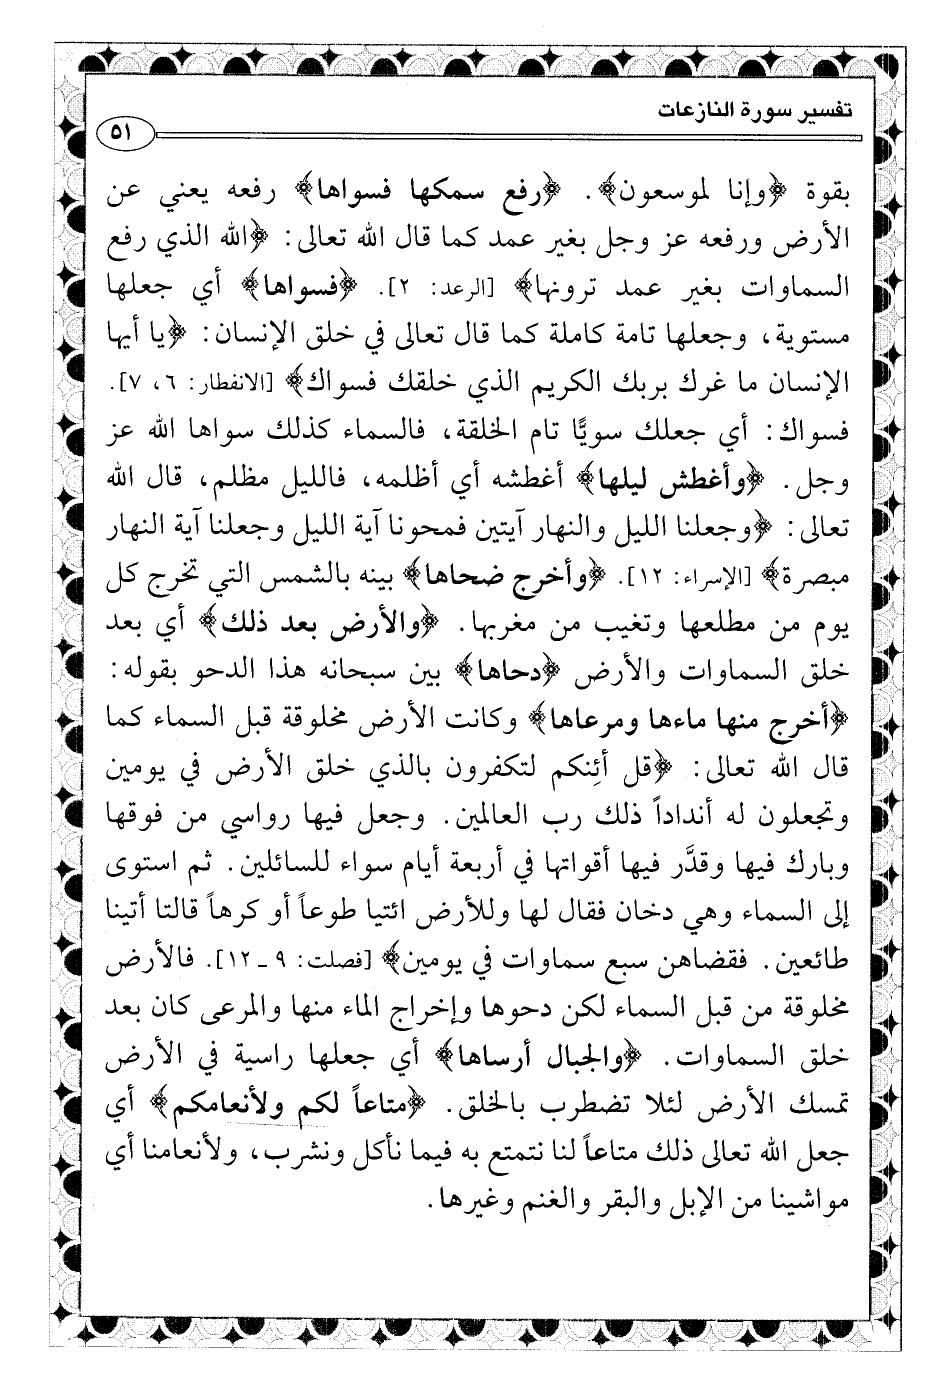 تفسير سورة النازعات
٥١
بقوة ﴿وإنا لموسعون﴾. ﴿رفع سمكها فسواها﴾ رفعه يعني عن
الأرض ورفعه عز وجل بغير عمد كما قال الله تعالى: ﴿الله الذي رفع
السماوات بغير عمد ترونها﴾ [الرعد: ٢]. ﴿فسواها﴾ أي جعلها
مستوية، وجعلها تامة كاملة كما قال تعالى في خلق الإنسان: ﴿يا أيها
الإنسان ما غرك بربك الكريم الذي خلقك فسواك﴾ [الانفطار: ٦، ٧].
فسواك: أي جعلك سويًّا تام الخلقة، فالسماء كذلك سواها الله عز
وجل. ﴿وأغطش ليلها﴾ أغطشه أي أظلمه، فالليل مظلم، قال الله
تعالى: ﴿وجعلنا الليل والنهار آيتين فمحونا آية الليل وجعلنا آية النهار
مبصرة﴾ [الإسراء: ١٢]. ﴿وأخرج ضحاها﴾ بينه بالشمس التي تخرج كل
يوم من مطلعها وتغيب من مغربها. ﴿والأرض بعد ذلك﴾ أي بعد
خلق السماوات والأرض ﴿دحاها﴾ بين سبحانه هذا الدحو بقوله:
﴿أخرج منها ماءها ومرعاها﴾ وكانت الأرض مخلوقة قبل السماء كما
قال الله تعالى: ﴿قل أئِنكم لتكفرون بالذي خلق الأرض في يومين
وتجعلون له أنداداً ذلك رب العالمين. وجعل فيها رواسي من فوقها
وبارك فيها وقدَّر فيها أقواتها في أربعة أيام سواء للسائلين. ثم استوى
إلى السماء وهي دخان فقال لها وللأرض ائتيا طوعاً أو كرهاً قالتا أتينا
طائعين. فقضاهن سبع سماوات في يومين﴾ [فصلت: ٩ ـ ١٢]. فالأرض
مخلوقة من قبل السماء لكن دحوها وإخراج الماء منها والمرعى كان بعد
خلق السماوات. ﴿والجبال أرساها﴾ أي جعلها راسية في الأرض
تمسك الأرض لئلا تضطرب بالخلق. ﴿متاعاً لكم ولأنعامكم﴾ أي
جعل الله تعالى ذلك متاعاً لنا نتمتع به فيما نأكل ونشرب، ولأنعامنا أي
مواشينا من الإبل والبقر والغنم وغيرها.